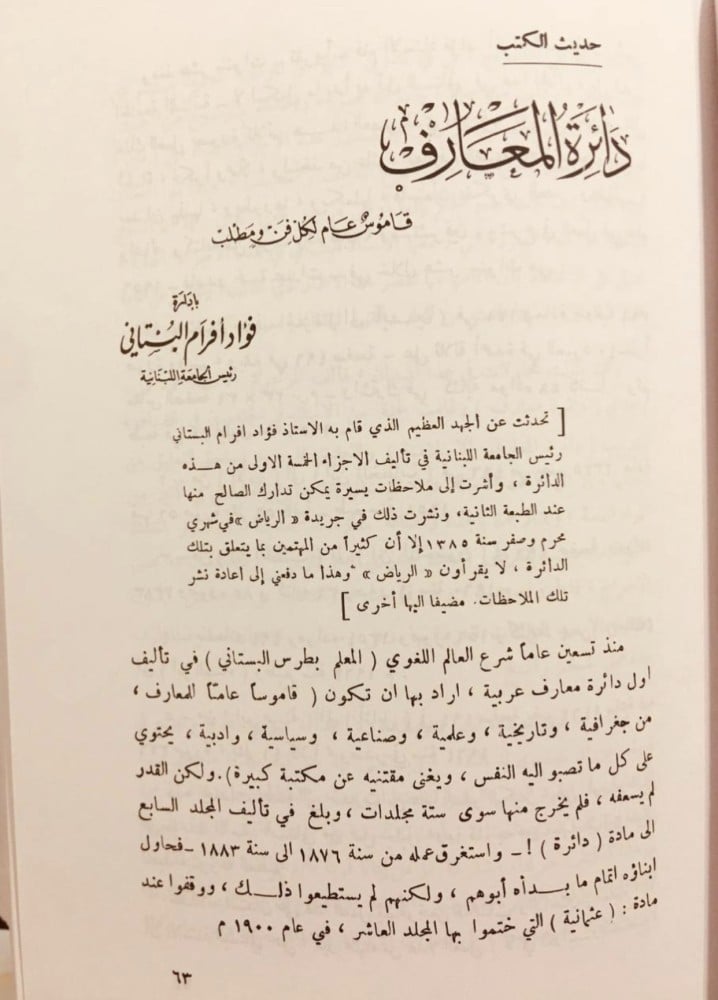 حديث الكتب
دَائِرَةُ المَعَارِف
قاموس عام لكل فن ومطلب
بإدارة
فؤاد أفرام البستاني
رئيس الجامعة اللبنانية
[ تحدثت عن الجهد العظيم الذي قام به الاستاذ فؤاد افرام البستاني
رئيس الجامعة اللبنانية في تأليف الاجزاء الخمسة الاولى من هــذه
الدائرة ، وأشرت إلى ملاحظات يسيرة يمكن تدارك الصالح منها
عند الطبعة الثانية، ونشرت ذلك في جريدة « الرياض »في شهري
محرم وصفر سنة ١٣٨٥ إلا أن كثيراً من المهتمين بما يتعلق بتلك
الدائرة ، لا يقرأون « الرياض » وهذا ما دفعني إلى أعادة نشر
تلك الملاحظات. مضيفا اليها أخرى ]
منذ تسعين عاماً شرع العالم اللغوي ( المعلم بطرس البستاني ) في تأليف
اول دائرة معارف عربية ، اراد بها ان تكون ( قاموساً عامّاً للمعارف ،
من جغرافية ، وتاريخية ، وعلمية ، وصناعية ، وسياسية ، وادبية ، يحتوي
على كل ما تصبو اليه النفس ، ويغنى مقتنيه عن مكتبة كبيرة ). ولكن القدر
لم يسعفه ، فلم يخرج منها سوى ستة مجلدات ، وبلغ في تأليف المجلد السابع
الى مادة ( دائرة ) ! – واستغرق عمله من سنة ١٨٧٦ الى سنة ١٨٨٣ – فحاول
ابناؤه اتمام ما بــدأه أبوهم ، ولكنهم لم يستطيعوا ذلــك ، ووقفوا عند
مادة : ( عثمانية ) التي ختموا بها المجلد العاشر ، في عام ١٩٠٠ م
٦٣